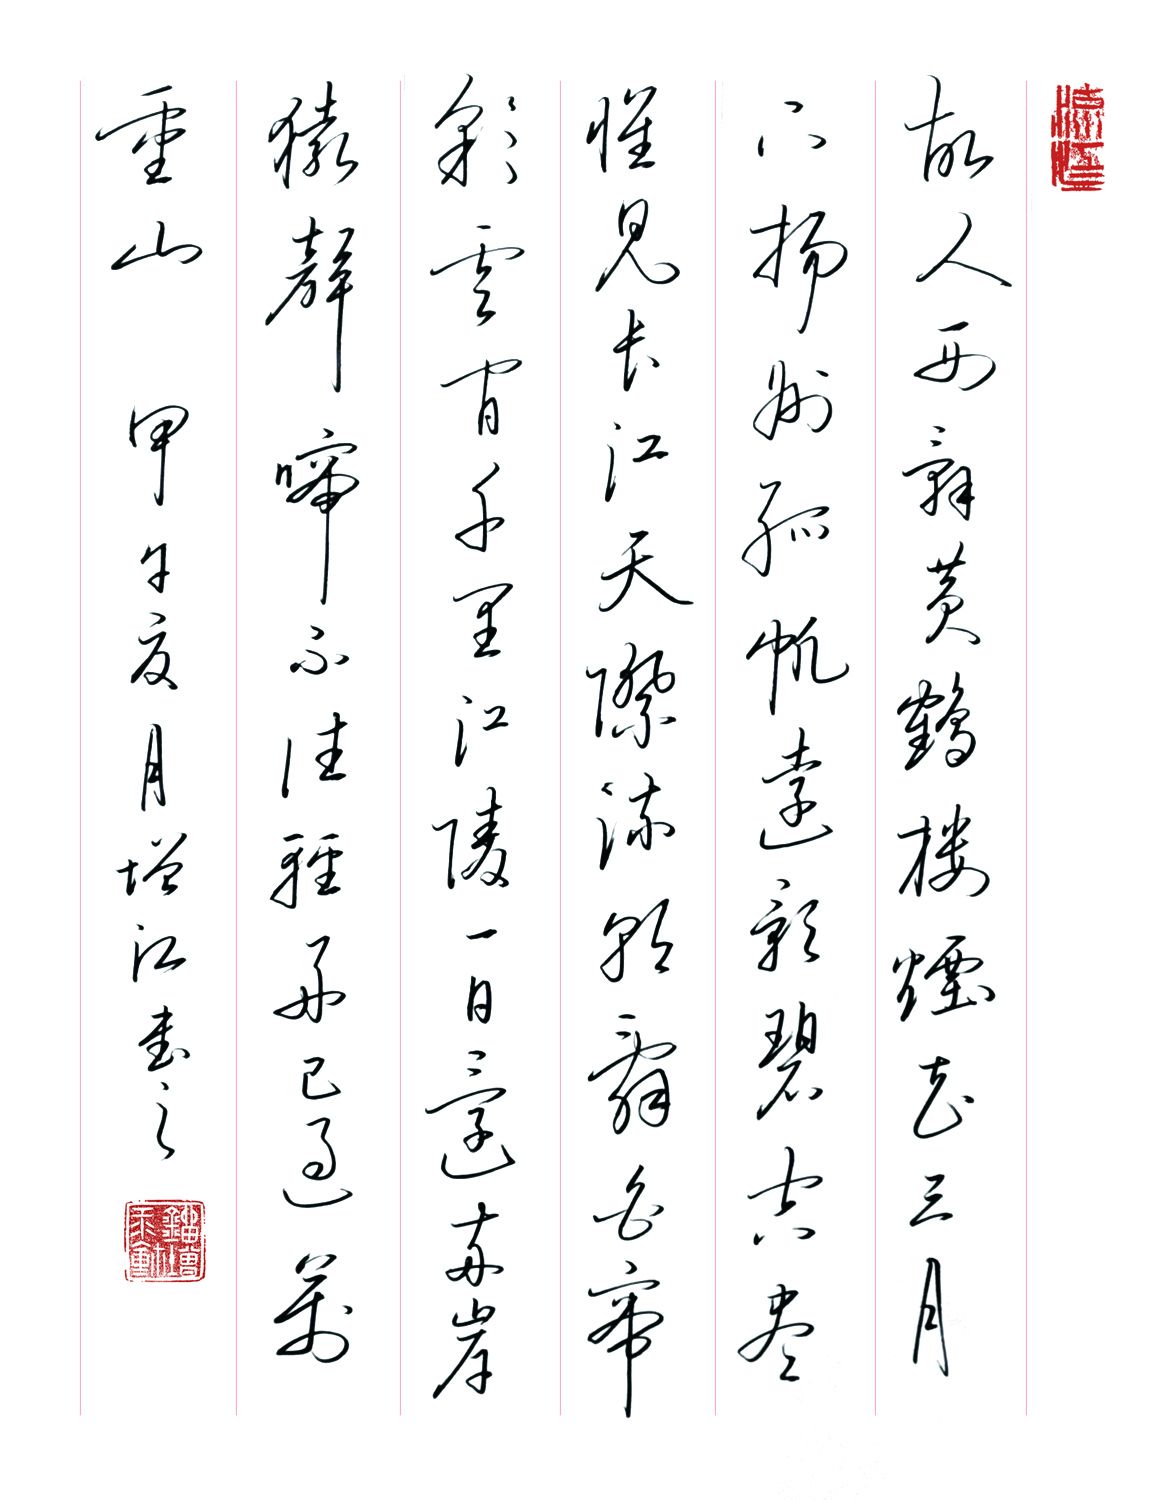 故人西辭黃鶴樓煙花三月
下揚州孤帆遠影碧空盡
惟見長江天際流朝辭白帝
彩雲間千里江陵一日還兩岸
猿聲啼不住輕舟已過萬
重山 甲午夏月增江書之